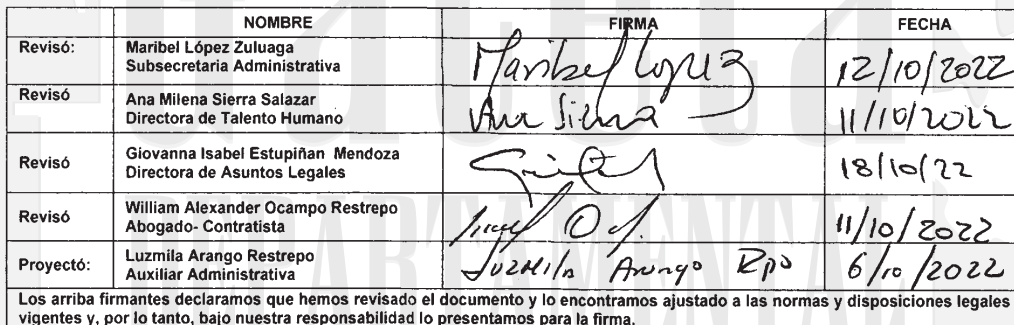 NOMBRE FIRMA FECHA
Revisó: Maribel López Zuluaga
Subsecretaria Administrativa Maribel Lopez 12/10/2022
Revisó Ana Milena Sierra Salazar
Directora de Talento Humano Ana Sierra 11/10/2022
Revisó Giovanna Isabel Estupiñan Mendoza
Directora de Asuntos Legales 18/10/22
Revisó William Alexander Ocampo Restrepo
Abogado- Contratista 11/10/2022
Proyectó: Luzmila Arango Restrepo
Auxiliar Administrativa Luzmila Arango Rpo 6/10/2022
Los arriba firmantes declaramos que hemos revisado el documento y lo encontramos ajustado a las normas y disposiciones legales
vigentes y, por lo tanto, bajo nuestra responsabilidad lo presentamos para la firma.
DEPARTAMENTAL